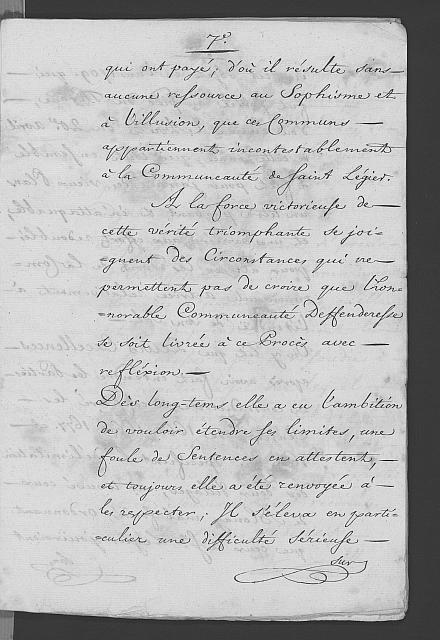 7.º
qui ont payé; d'où il résulte sans
aucune ressource au Sophisme et
à l'illusion, que ces Communs
appartiennent incontestablement
à la Communeauté de Saint Légier.
A la force victorieuse de
cette vérité triomphante se joi-
=gnent des Circonstances qui ne
permettent pas de croire que l'hon-
=norable Communeauté Deffenderesse
se soit livrée à ce Procès avec
refléxion.
Dès long-tems elle a eu l'ambition
de vouloir étendre ses limites, une
foule de Sentences en attestent,
et toujours elle a été renvoyée à
les respecter; Il s'éleva en parti-
=culier une difficulté Sérieuse
sur